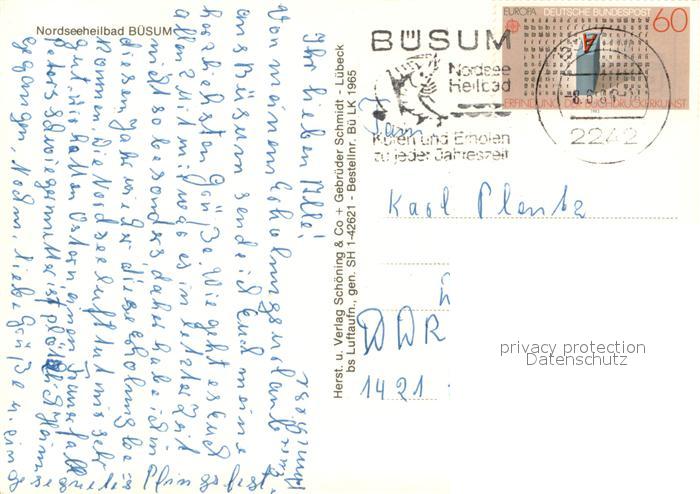 Nordseeheilbad BÜSUM
Ihr lieben Alle!
Von meinem Erholungsurlaub
aus Büsum sende ich Euch meine
herzlichsten Grüße. Wie geht es Euch
allen? Mir ging es in letzter Zeit
nicht so besonders, daher habe ich in
diesem Jahr wieder diese Erholung be-
kommen. Die Nordseeluft tut mir sehr
gut. Wir hatten Ostern einen Trauerfall
Peters Schwiegermutter ist plötzlich heim
gegangen. Nochm. liebe Grüße u. ein
gesegnetes Pfingstfest.
Herst. u. Verlag Schöning & Co + Gebrüder Schmidt - Lübeck
bs Luftaufn., gen. SH 1-42621 - Bestellnr. Bü LK 1965
BÜSUM
Nordsee
Heilbad
Kuren und Erholen
zu jeder Jahreszeit
EUROPA DEUTSCHE BUNDESPOST
60
ERFINDUNG DER BUCHDRUCKERKUNST
2242
Fam.
Karl Plentz
DDR
1421
privacy protection
Datenschutz